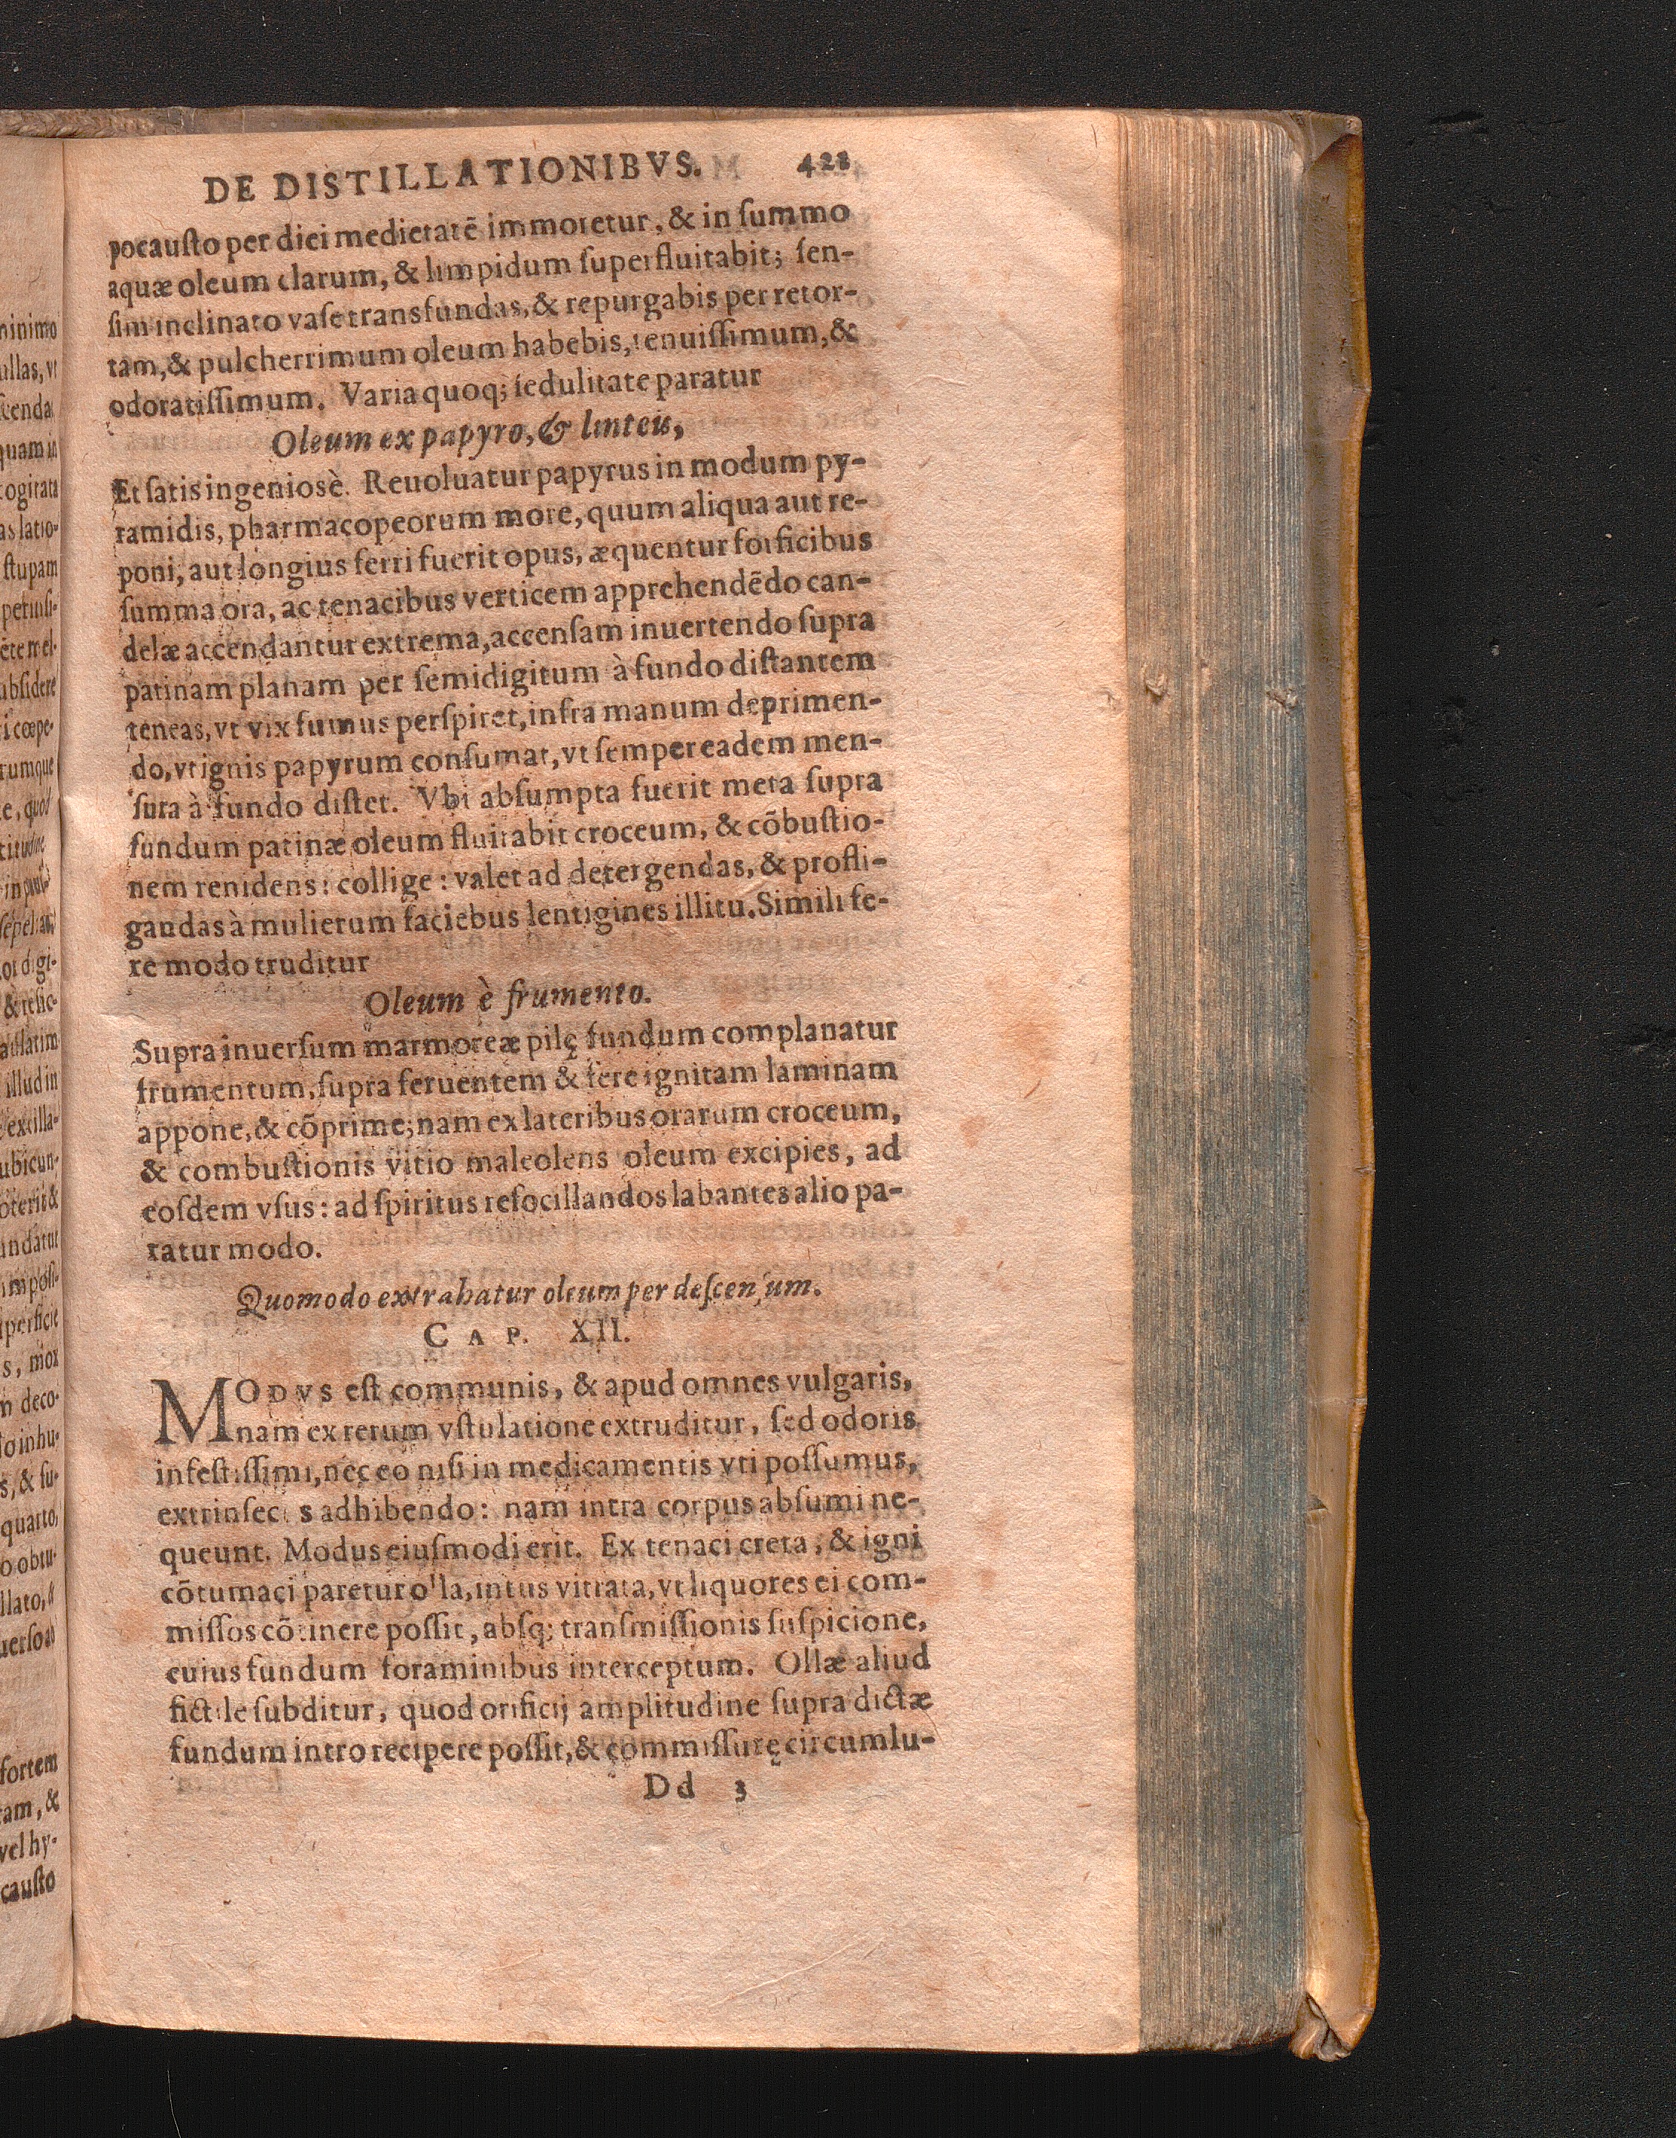 DE DISTILLATIONIBVS. 421
pocausto per diei medietatẽ immoretur, & in summo
aquæ oleum clarum, & limpidum superfluitabit; sen-
sim inclinato vase transfundas, & repurgabis per retor-
tam, & pulcherrimum oleum habebis, tenuissimum, &
odoratissimum. Varia quoq; sedulitate paratur
Oleum ex papyro, & linteis,
Et satis ingeniosè. Reuoluatur papyrus in modum py-
ramidis, pharmacopeorum more, quum aliqua aut re-
poni, aut longius ferri fuerit opus, æquentur forficibus
summa ora, ac tenacibus verticem apprehendẽdo can-
delæ accendantur extrema, accensam inuertendo supra
patinam planam per semidigitum à fundo distantem
teneas, vt vix fumus perspiret, infra manum deprimen-
do, vt ignis papyrum consumat, vt semper eadem men-
sura à fundo distet. Vbi absumpta fuerit meta supra
fundum patinæ oleum fluitabit croceum, & cõbustio-
nem renidens: collige: valet ad detergendas, & profli-
gandas à mulierum faciebus lentigines illitu. Simili fe-
re modo truditur
Oleum è frumento.
Supra inuersum marmoreæ pilę fundum complanatur
frumentum, supra feruentem & fere ignitam laminam
appone, & cõprime; nam ex lateribus orarum croceum,
& combustionis vitio maleolens oleum excipies, ad
eosdem vsus: ad spiritus refocillandos labantes alio pa-
ratur modo.
Quomodo extrahatur oleum per descensum.
CAP. XII.
MODVS est communis, & apud omnes vulgaris,
nam ex rerum vstulatione extruditur, sed odoris
infestissimi, nec eo nisi in medicamentis vti possumus,
extrinsecus adhibendo: nam intra corpus absumi ne-
queunt. Modus eiusmodi erit. Ex tenaci creta, & igni
cõtumaci paretur olla, intus vitrata, vt liquores ei com-
missos cõtinere possit, absq; transmissionis suspicione,
cuius fundum foraminibus interceptum. Ollæ aliud
fictile subditur, quod orificij amplitudine supra dictæ
fundum intro recipere possit, & commissurę circumlu-
Dd 3